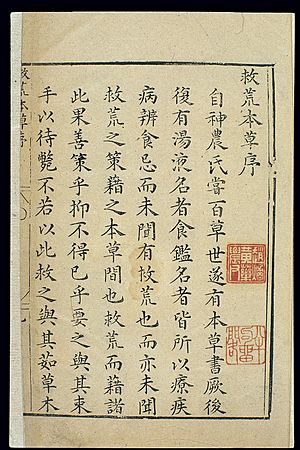 救荒本草序
自神農氏嘗百草世遂有本草書厥後
復有湯液名者食鑑名者皆所以療疾
病辨食忌而未聞有救荒也而亦未聞
救荒之策藉之本草間也救荒而藉諸
此果善策乎抑不得已乎要之與其束
手以待斃不若以此救之與其茹草木
救荒本草序